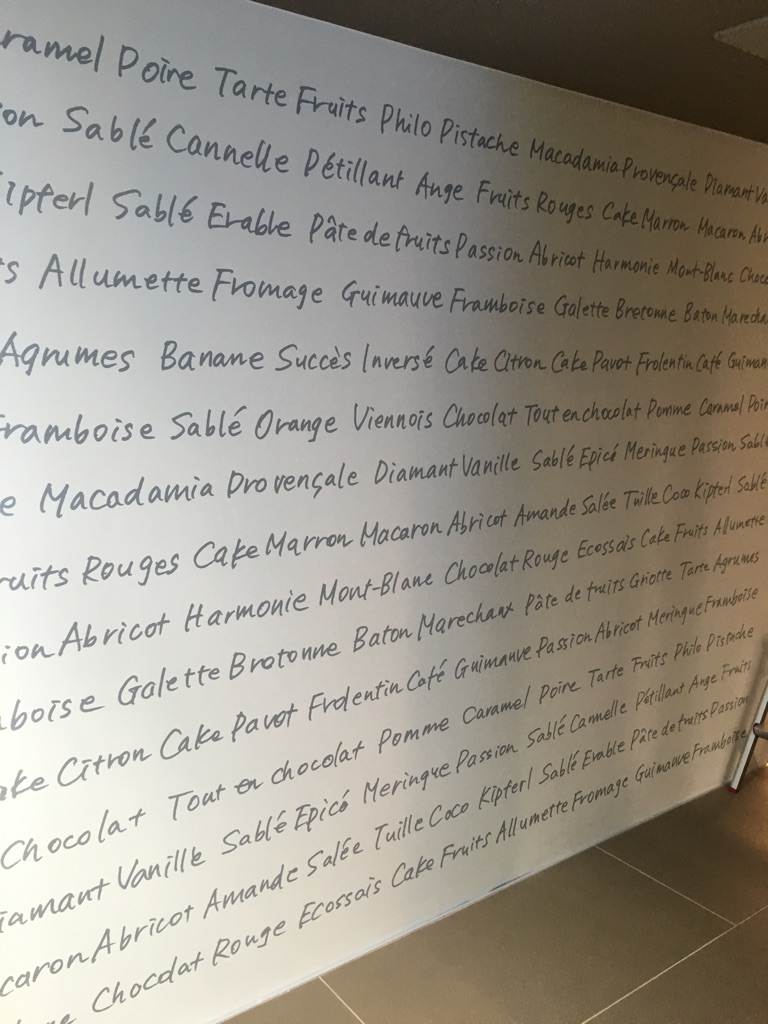 ramel Poire Tarte Fruits Philo Pistache Macadamia Provençale Diamant Va
ion Sablé Cannelle Pétillant Ange Fruits Rouges Cake Marron Macaron Abr
Kipferl Sablé Erable Pâte de fruits Passion Abricot Harmonie Mont-Blanc Choco
ts Allumette Fromage Guimauve Framboise Galette Bretonne Baton Marecha
Agrumes Banane Succès Inversé Cake Citron Cake Pavot Frolentin Café Guimau
Framboise Sablé Orange Viennois Chocolat Tout en chocolat Pomme Caramel Poir
e Macadamia Provençale Diamant Vanille Sablé Epicé Meringue Passion Sablé
ruits Rouges Cake Marron Macaron Abricot Amande Salée Tuille Coco Kipferl Sablé
ion Abricot Harmonie Mont-Blanc Chocolat Rouge Ecossais Cake Fruits Allumette
mboise Galette Brotonne Baton Marechaux Pâte de fruits Griotte Tarte Agrumes
ake Citron Cake Pavot Frolentin Café Guimauve Passion Abricot Meringue Framboise
Chocolat Tout en chocolat Pomme Caramel Poire Tarte Fruits Philo Pistache
iamant Vanille Sablé Epicé Meringue Passion Sablé Cannelle Pétillant Ange Fruits
caron Abricot Amande Salée Tuille Coco Kipferl Sablé Erable Pâte de fruits Passion
Chocolat Rouge Ecossais Cake Fruits Allumette Fromage Guimauve Framboise